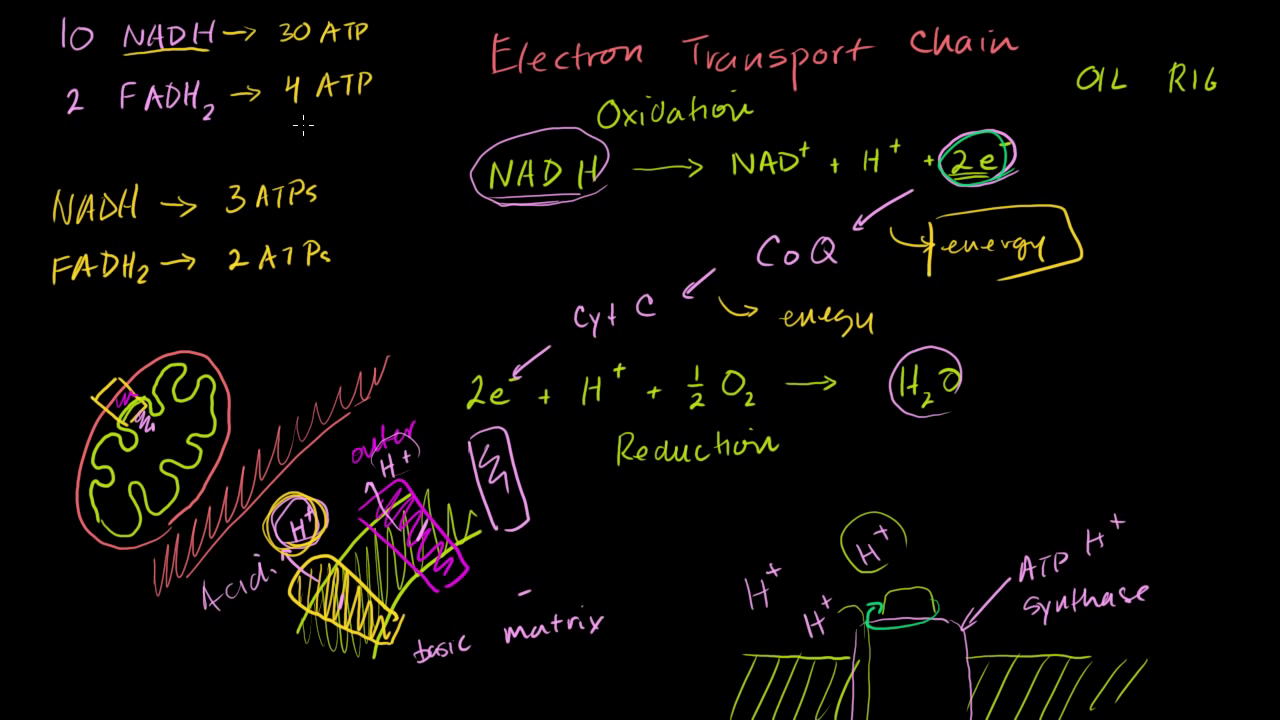 10 NADH → 30 ATP
2 FADH₂ → 4 ATP
NADH → 3 ATPs
FADH₂ → 2 ATPs
Electron Transport Chain
OIL RIG
Oxidation
NADH → NAD⁺ + H⁺ + 2e⁻
CoQ
energy
Cyt C
energy
2e⁻ + H⁺ + ½ O₂ → H₂O
Reduction
outer
H⁺
H⁺
Acidi
basic matrix
H⁺
H⁺
H⁺
H⁺
ATP
Synthase